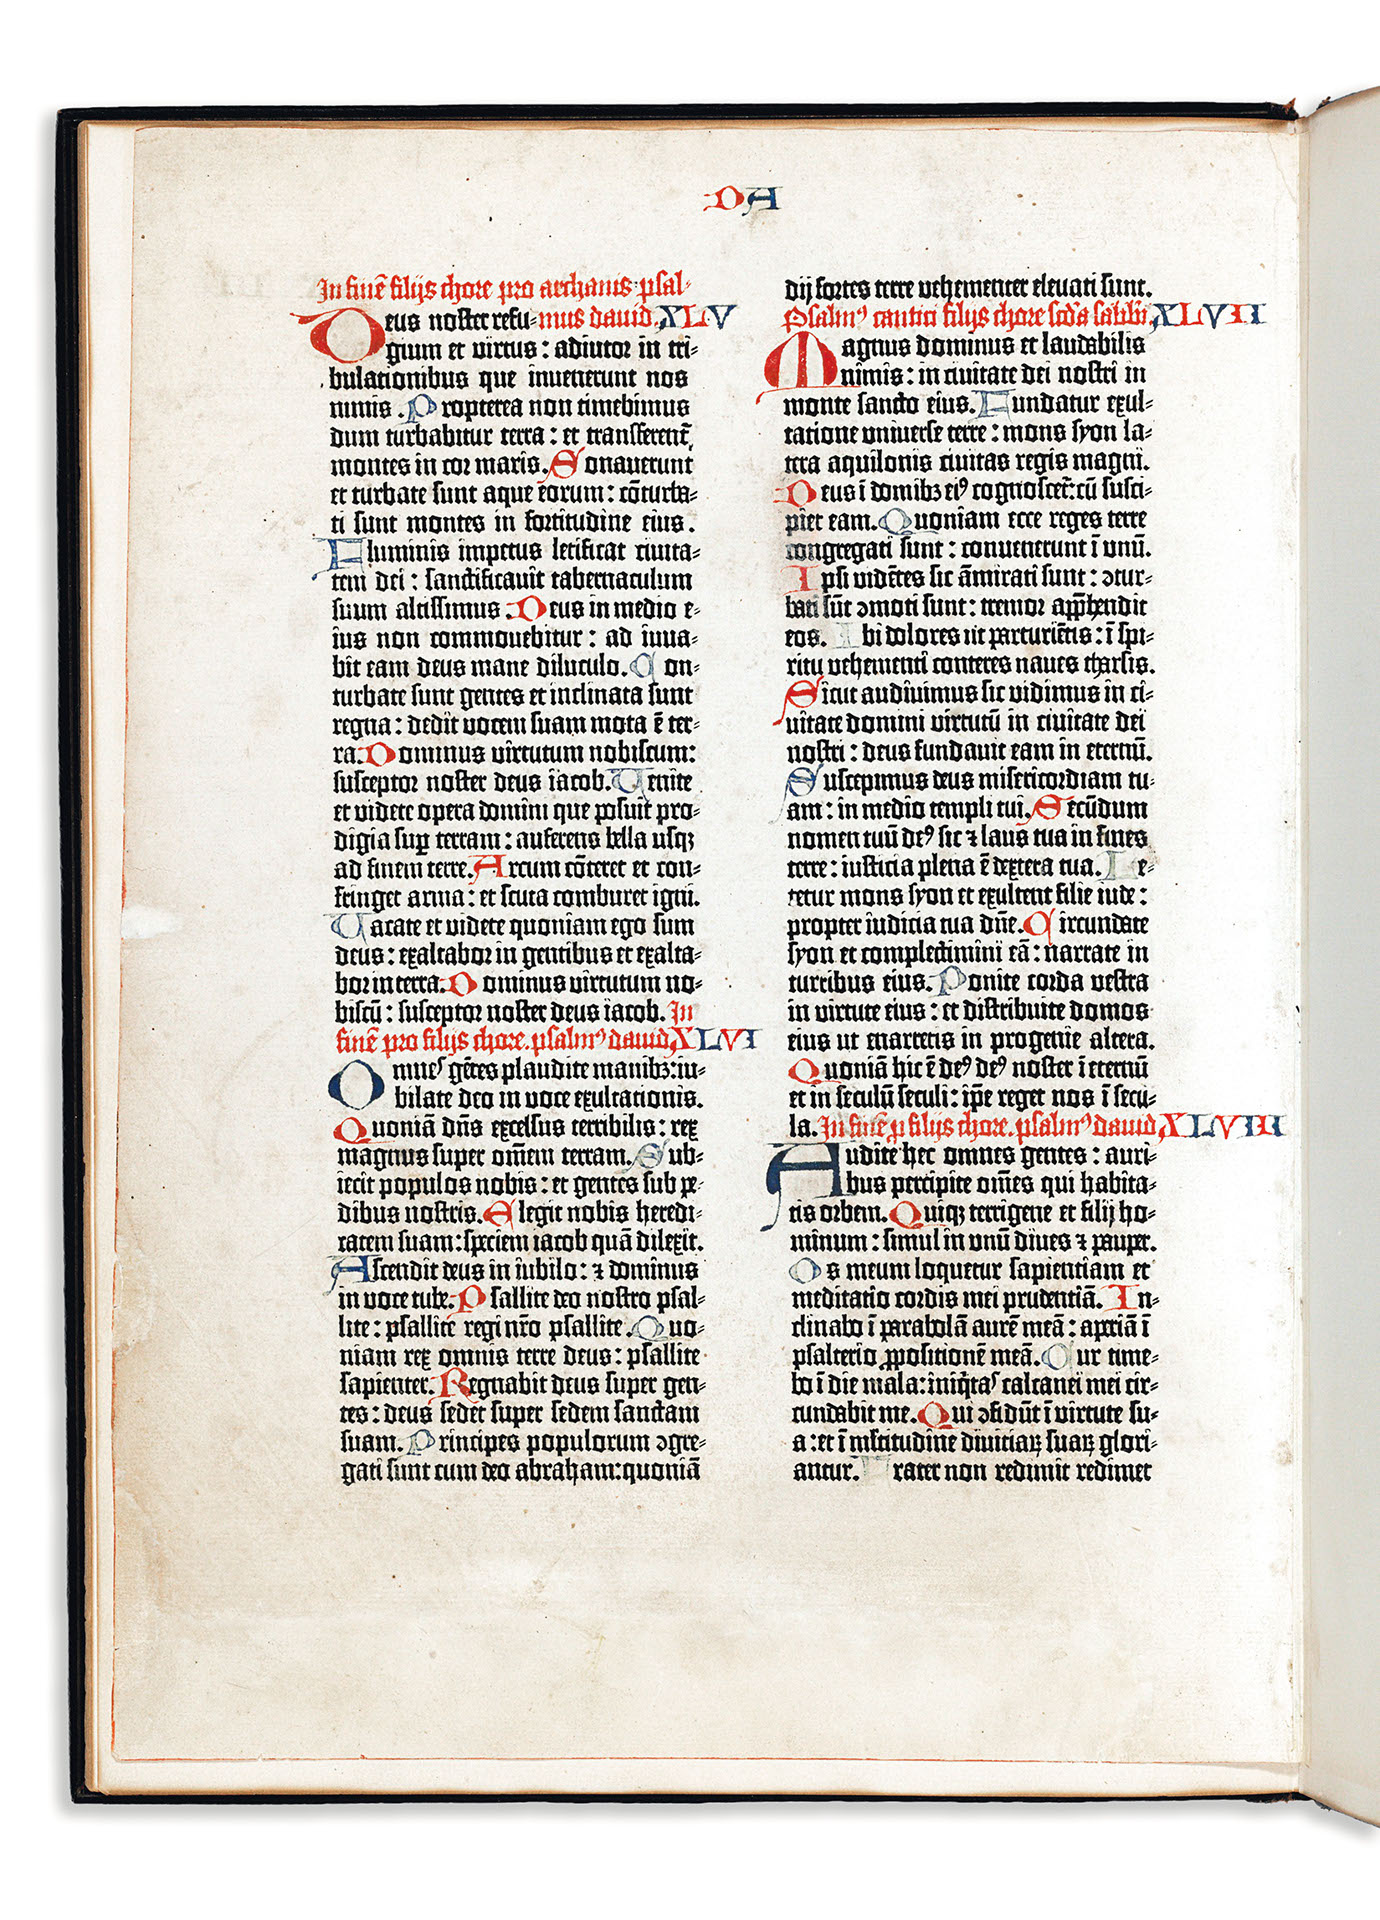 DA
In finē filijs chore pro archanis psal-
Deus noster refu- mus david. XLV
gium et virtus : adiutor in tri-
bulationibus que invenerunt nos
nimis. Propterea non timebimus
dum turbabitur terra : et transferent̄
montes in cor maris. Sonaverunt
et turbate sunt aque eorum : cōturba-
ti sunt montes in fortitudine eius.
Fluminis impetus letificat civita-
tem dei : sanctificavit tabernaculum
suum altissimus. Deus in medio e-
ius non commovebitur : ad iuva-
bit eam deus mane diluculo. Con-
turbate sunt gentes et inclinata sunt
regna : dedit vocem suam mota ē ter-
ra. Dominus virtutum nobiscum:
susceptor noster deus iacob. Venite
et videte opera domini que posuit pro-
digia sup terram : auferens bella usqꝫ
ad finem terre. Arcum cōteret et con-
fringet arma : et scuta comburet igni.
Vacate et videte quoniam ego sum
deus : exaltabor in gentibus et exalta-
bor in terra. Dominus virtutum no-
biscū : susceptor noster deus iacob. In
finē pro filijs chore. psalm⁹ david. XLVI
Omnes gētes plaudite manibꝫ : iu-
bilate deo in voce exultationis.
Quoniā dn̄s excelsus terribilis : rex
magnus super om̄em terram. Sub-
iecit populos nobis : et gentes sub pe-
dibus nostris. Elegit nobis heredi-
tatem suam : speciem iacob quā dilexit.
Ascendit deus in iubilo : ⁊ dominus
in voce tube. Psallite deo nostro psal-
lite : psallite regi nr̄o psallite. Quo-
niam rex omnis terre deus : psallite
sapienter. Regnabit deus super gen-
tes : deus sedet super sedem sanctam
suam. Principes populorum ɔgre-
gati sunt cum deo abraham : quoniā
dij fortes terre vehementer elevati sunt.
Psalm⁹ cantici filijs chore scd̄a sabb̄i. XLVII
Magnus dominus et laudabilis
nimis : in civitate dei nostri in
monte sancto eius. Fundatur exul-
tatione universe terre : mons syon la-
tera aquilonis civitas regis magni.
Deus ī domibꝫ ei⁹ cognoscet̄ : cū susci-
piet eam. Quoniam ecce reges terre
congregati sunt : convenerunt ī unū.
Ipsi vidētes sic āmirati sunt : ɔtur-
bati sūt ɔmoti sunt : tremor app̄hendit
eos. Ibi dolores ut parturiētis : ī spi-
ritu vehementi conteres naves tharsis.
Sicut audivimus sic vidimus in ci-
vitate domini virtutū in civitate dei
nostri : deus fundavit eam in eternū.
Suscepimus deus misericordiam tu-
am : in medio templi tui. Secūdum
nomen tuū de⁹ sic ⁊ laus tua in fines
terre : iusticia plena ē dextera tua. Le-
tetur mons syon et exultent filie iude :
propter iudicia tua dn̄e. Circundate
syon et complectimini eā : narrate in
turribus eius. Ponite corda vestra
in virtute eius : et distribuite domos
eius ut enarretis in progenie altera.
Quoniā hic ē de⁹ de⁹ noster ī eternū
et in seculū seculi : ip̄e reget nos ī secu-
la. In finē ꝓ filijs chore. psalm⁹ david. XLVIII
Audite hec omnes gentes : auri-
bus percipite om̄es qui habita-
tis orbem. Quiqꝫ terrigene et filij ho-
minum : simul in unū dives ⁊ pauper.
Os meum loquetur sapientiam et
meditatio cordis mei prudentiā. In-
clinabo ī parabolā aurē meā : apriā ī
psalterio ꝓpositionē meā. Cur time-
bo ī die mala : iniq̄tas calcanei mei cir-
cundabit me. Qui ɔfidūt ī virtute su-
a : et ī multitudine diviciaꝝ suaꝝ glori-
antur. Frater non redimit redimet